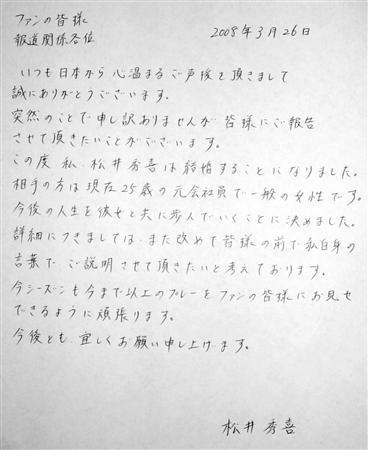 ファンの皆様
報道関係各位
2008年3月26日
いつも日本から心温まるご声援を頂きまして
誠にありがとうございます。
突然のことで申し訳ありませんが皆様にご報告
させて頂きたいことがございます。
この度私、松井秀喜は結婚することになりました。
相手の方は現在25歳の元会社員で一般の女性です。
今後の人生を彼女と共に歩んでいくことに決めました。
詳細につきましては、また改めて皆様の前で私自身の
言葉で、ご説明させて頂きたいと考えております。
今シーズンも今まで以上のプレーをファンの皆様にお見せ
できるように頑張ります。
今後とも、宜しくお願い申し上げます。
松井秀喜